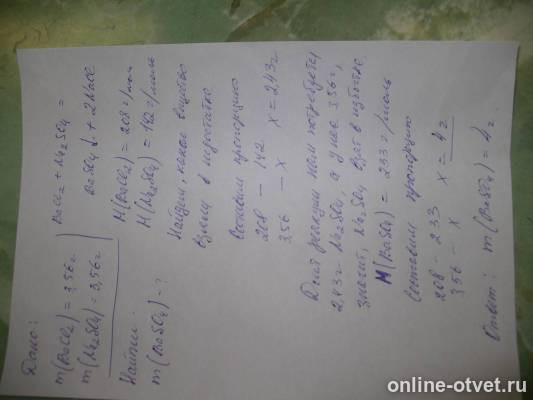 Дано:
m(BaCl2) = 3,56г
m(Na2SO4) = 3,56г
Найти:
m(BaSO4) - ?
BaCl2 + Na2SO4 =
BaSO4↓ + 2NaCl
M(BaCl2) = 208 г/мол
M(Na2SO4) = 142 г/моль
Найдем, какое вещество
взято в недостатке
Составим пропорцию
208 — 142
3,56 — x x = 2,43г
Для реакции нам потребуется
2,43г Na2SO4, а у нас 3,56г,
значит, Na2SO4 взят в избытке
M(BaSO4) = 233 г/моль
Составим пропорцию
208 - 233
3,56 - x x = 4г
Ответ: m(BaSO4) = 4г.
online-otvet.ru